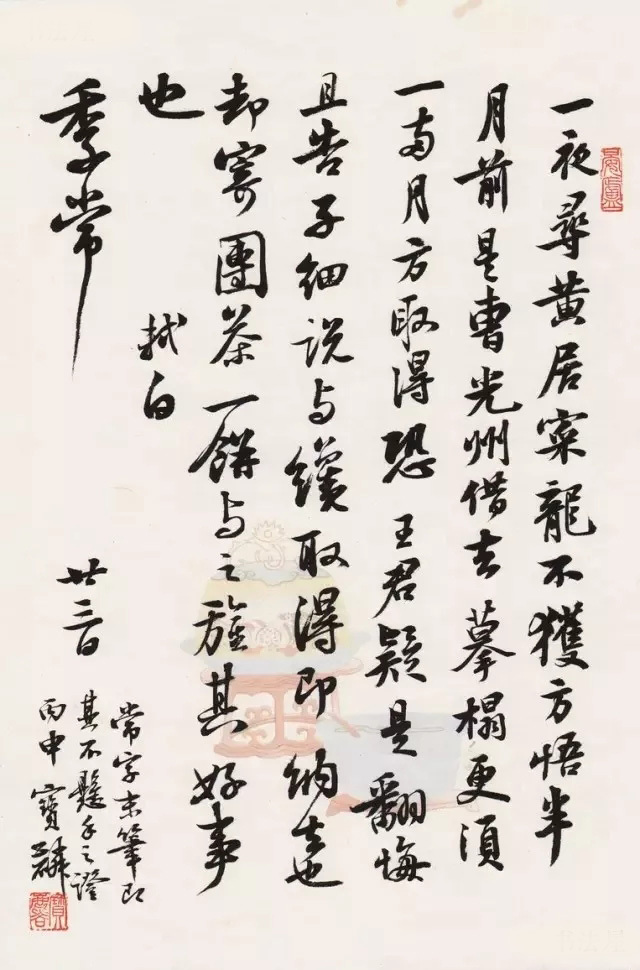 一夜尋黄居寀龍不獲方悟半
月前是曹光州借去摹搨更須
一兩月方取得恐王君疑是翻悔
且告子細說与纔取得即納去也
却寄團茶一餅与之旌其好事
也
軾白
季常
廿三日
常字末筆即
其不懸手之證
丙申寶麟